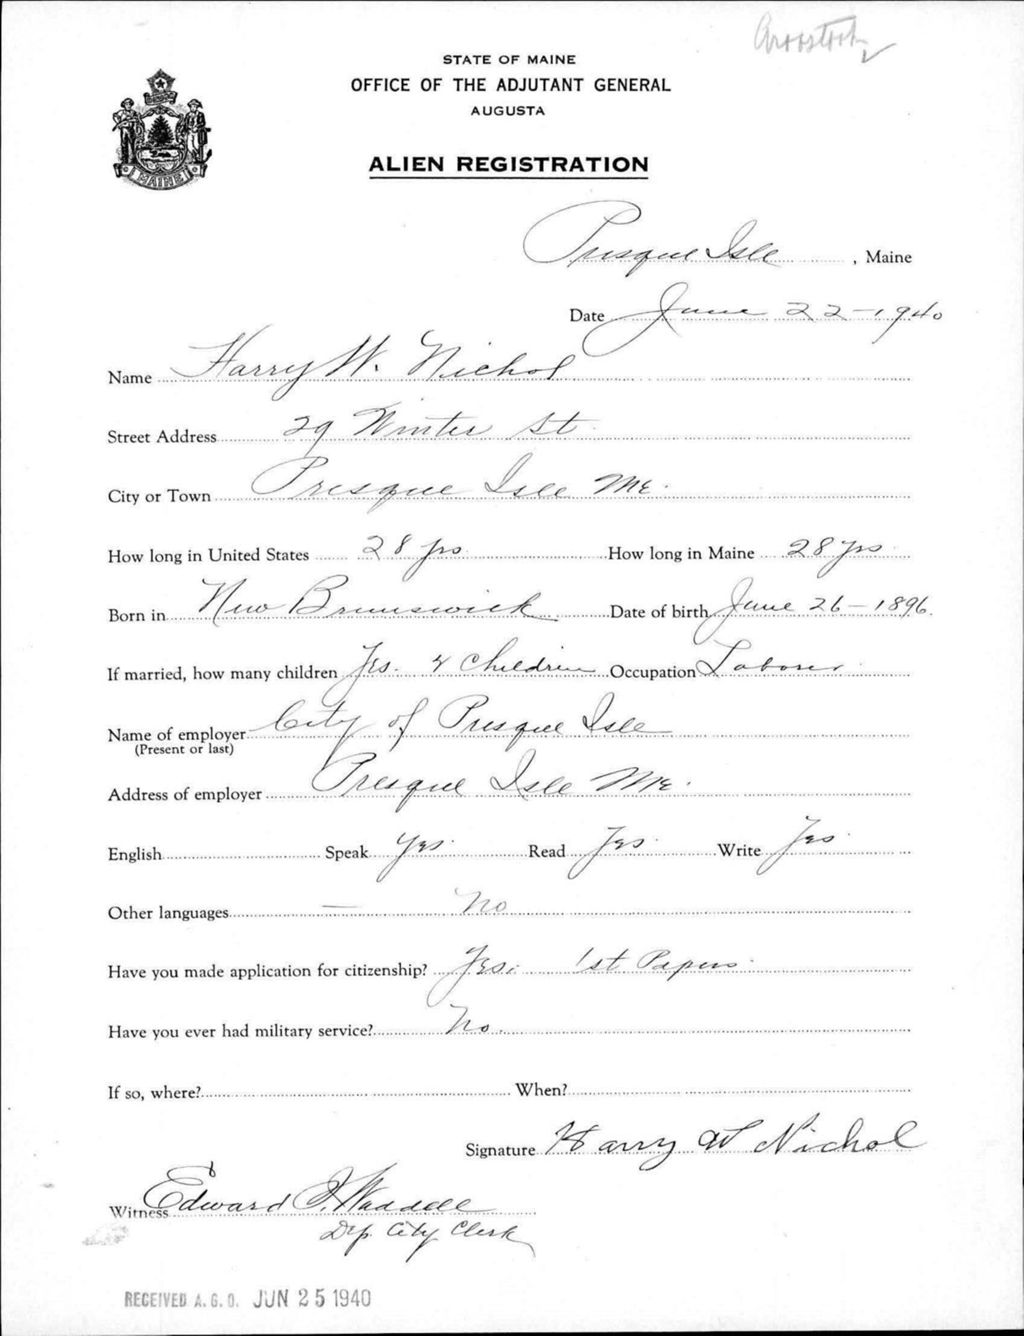 Aroostook
STATE OF MAINE
OFFICE OF THE ADJUTANT GENERAL
AUGUSTA
MAINE
ALIEN REGISTRATION
Presque Isle, Maine
Date June 22-1940
Name Harry W. Nichol
Street Address 29 Winter St
City or Town Presque Isle Me.
How long in United States 28 yrs How long in Maine 28 yrs
Born in New Brunswick Date of birth June 26-1896
If married, how many children Yes. 4 Children Occupation Laborer
Name of employer City of Presque Isle
(Present or last)
Address of employer Presque Isle Me.
English Speak Yes. Read Yes. Write Yes.
Other languages — No
Have you made application for citizenship? Yes. 1st Papers
Have you ever had military service? No.
If so, where? When?
Signature Harry W Nichol
Witness Edward Waddell
Dep. City Clerk
RECEIVED A.G.O. JUN 25 1940